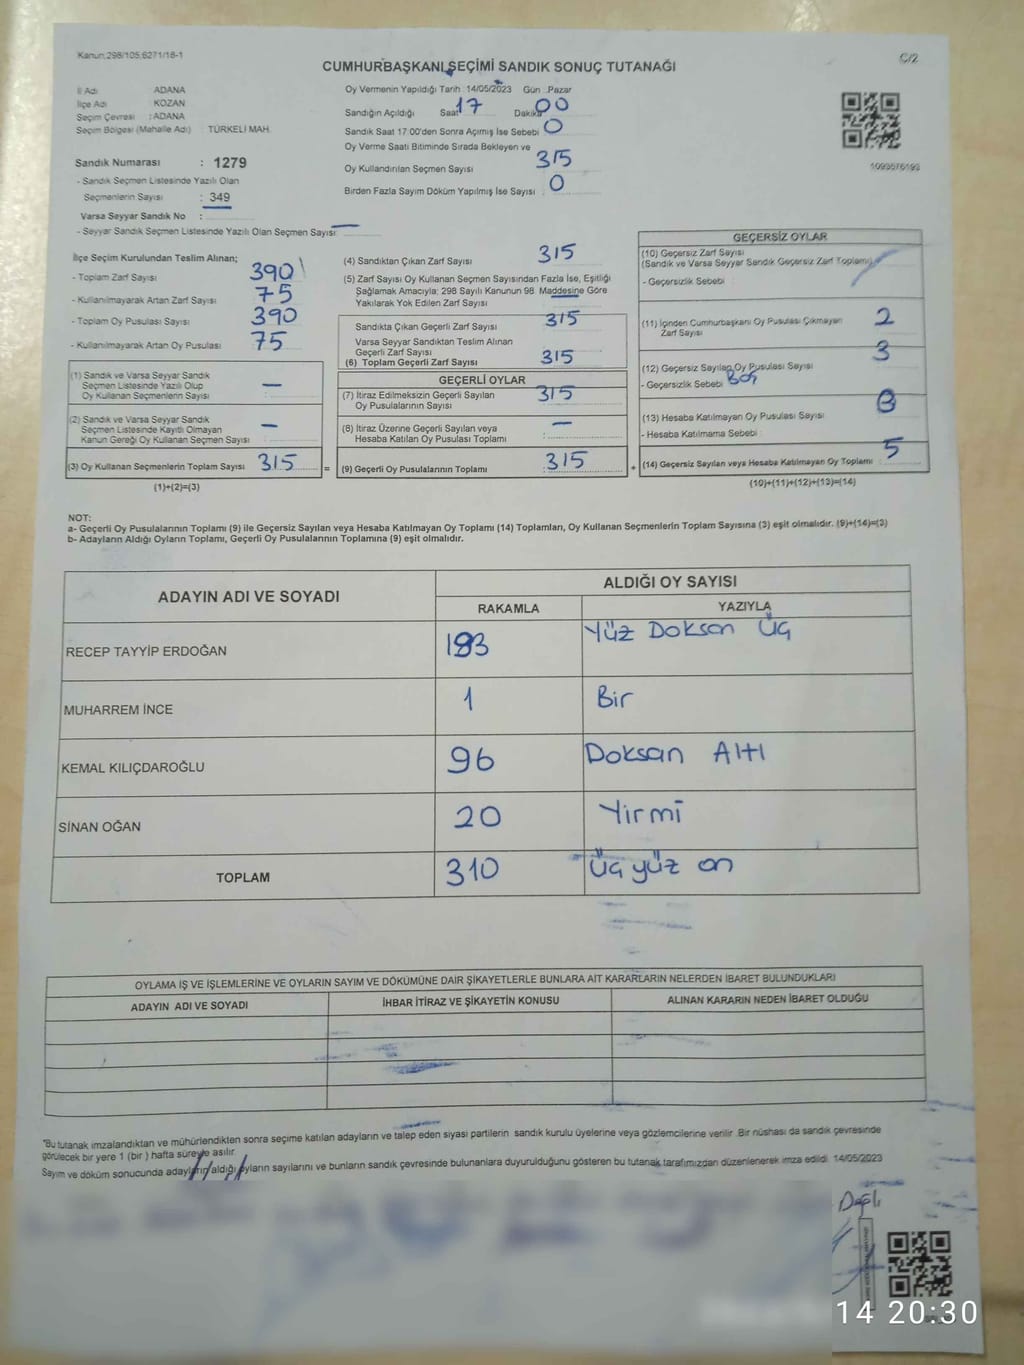 Kanun:298/105,6271/18-1
C/2
CUMHURBAŞKANI SEÇİMİ SANDIK SONUÇ TUTANAĞI
İl Adı ADANA
İlçe Adı KOZAN
Seçim Çevresi : ADANA
Seçim Bölgesi (Mahalle Adı) : TÜRKELİ MAH.
Sandık Numarası : 1279
- Sandık Seçmen Listesinde Yazılı Olan
Seçmenlerin Sayısı : 349
Varsa Seyyar Sandık No :
- Seyyar Sandık Seçmen Listesinde Yazılı Olan Seçmen Sayısı: —
Oy Vermenin Yapıldığı Tarih :14/05/2023 Gün :Pazar
Sandığın Açıldığı Saat 17 Dakika 00
Sandık Saat 17.00'den Sonra Açımış İse Sebebi 0
Oy Verme Saati Bitiminde Sırada Bekleyen ve
Oy Kullandırılan Seçmen Sayısı 315
Birden Fazla Sayım Döküm Yapılmış İse Sayısı : 0
1093576193
İlçe Seçim Kurulundan Teslim Alınan;
- Toplam Zarf Sayısı 390
- Kullanılmayarak Artan Zarf Sayısı 75
- Toplam Oy Pusulası Sayısı 390
- Kullanılmayarak Artan Oy Pusulası 75
(1) Sandık ve Varsa Seyyar Sandık
Seçmen Listesinde Yazılı Olup
Oy Kullanan Seçmenlerin Sayısı —
(2) Sandık ve Varsa Seyyar Sandık
Seçmen Listesinde Kayıtlı Olmayan
Kanun Gereği Oy Kullanan Seçmen Sayısı —
(3) Oy Kullanan Seçmenlerin Toplam Sayısı 315
(1)+(2)=(3)
(4) Sandıktan Çıkan Zarf Sayısı 315
(5) Zarf Sayısı Oy Kullanan Seçmen Sayısından Fazla İse, Eşitliği
Sağlamak Amacıyla; 298 Sayılı Kanunun 98. Maddesine Göre
Yakılarak Yok Edilen Zarf Sayısı —
Sandıkta Çıkan Geçerli Zarf Sayısı 315
Varsa Seyyar Sandıktan Teslim Alınan
Geçerli Zarf Sayısı
(6) Toplam Geçerli Zarf Sayısı 315
GEÇERLİ OYLAR
(7) İtiraz Edilmeksizin Geçerli Sayılan
Oy Pusulalarının Sayısı 315
(8) İtiraz Üzerine Geçerli Sayılan veya
Hesaba Katılan Oy Pusulası Toplamı —
= (9) Geçerli Oy Pusulalarının Toplamı : 315 +
GEÇERSİZ OYLAR
(10) Geçersiz Zarf Sayısı
(Sandık ve Varsa Seyyar Sandık Geçersiz Zarf Toplamı)
- Geçersizlik Sebebi
(11) İçinden Cumhurbaşkanı Oy Pusulası Çıkmayan
Zarf Sayısı 2
(12) Geçersiz Sayılan Oy Pusulası Sayısı 3
- Geçersizlik Sebebi Boş
(13) Hesaba Katılmayan Oy Pusulası Sayısı
- Hesaba Katılmama Sebebi
(14) Geçersiz Sayılan veya Hesaba Katılmayan Oy Toplamı : 5
(10)+(11)+(12)+(13)=(14)
NOT:
a- Geçerli Oy Pusulalarının Toplamı (9) ile Geçersiz Sayılan veya Hesaba Katılmayan Oy Toplamı (14) Toplamları, Oy Kullanan Seçmenlerin Toplam Sayısına (3) eşit olmalıdır. (9)+(14)=(3)
b- Adayların Aldığı Oyların Toplamı, Geçerli Oy Pusulalarının Toplamına (9) eşit olmalıdır.
ADAYIN ADI VE SOYADI
ALDIĞI OY SAYISI
RAKAMLA YAZIYLA
RECEP TAYYİP ERDOĞAN 193 Yüz Doksan Üç
MUHARREM İNCE 1 Bir
KEMAL KILIÇDAROĞLU 96 Doksan Altı
SİNAN OĞAN 20 Yirmi
TOPLAM 310 Üç yüz on
OYLAMA İŞ VE İŞLEMLERİNE VE OYLARIN SAYIM VE DÖKÜMÜNE DAİR ŞİKAYETLERLE BUNLARA AİT KARARLARIN NELERDEN İBARET BULUNDUKLARI
ADAYIN ADI VE SOYADI İHBAR İTİRAZ VE ŞİKAYETİN KONUSU ALINAN KARARIN NEDEN İBARET OLDUĞU
*Bu tutanak imzalandıktan ve mühürlendikten sonra seçime katılan adayların ve talep eden siyasi partilerin sandık kurulu üyelerine veya gözlemcilerine verilir. Bir nüshası da sandık çevresinde
görülecek bir yere 1 (bir ) hafta süreyle asılır.
Sayım ve döküm sonucunda adayların aldığı oyların sayılarını ve bunların sandık çevresinde bulunanlara duyurulduğunu gösteren bu tutanak tarafımızdan düzenlenerek imza edildi. 14/05/2023
14 20:30